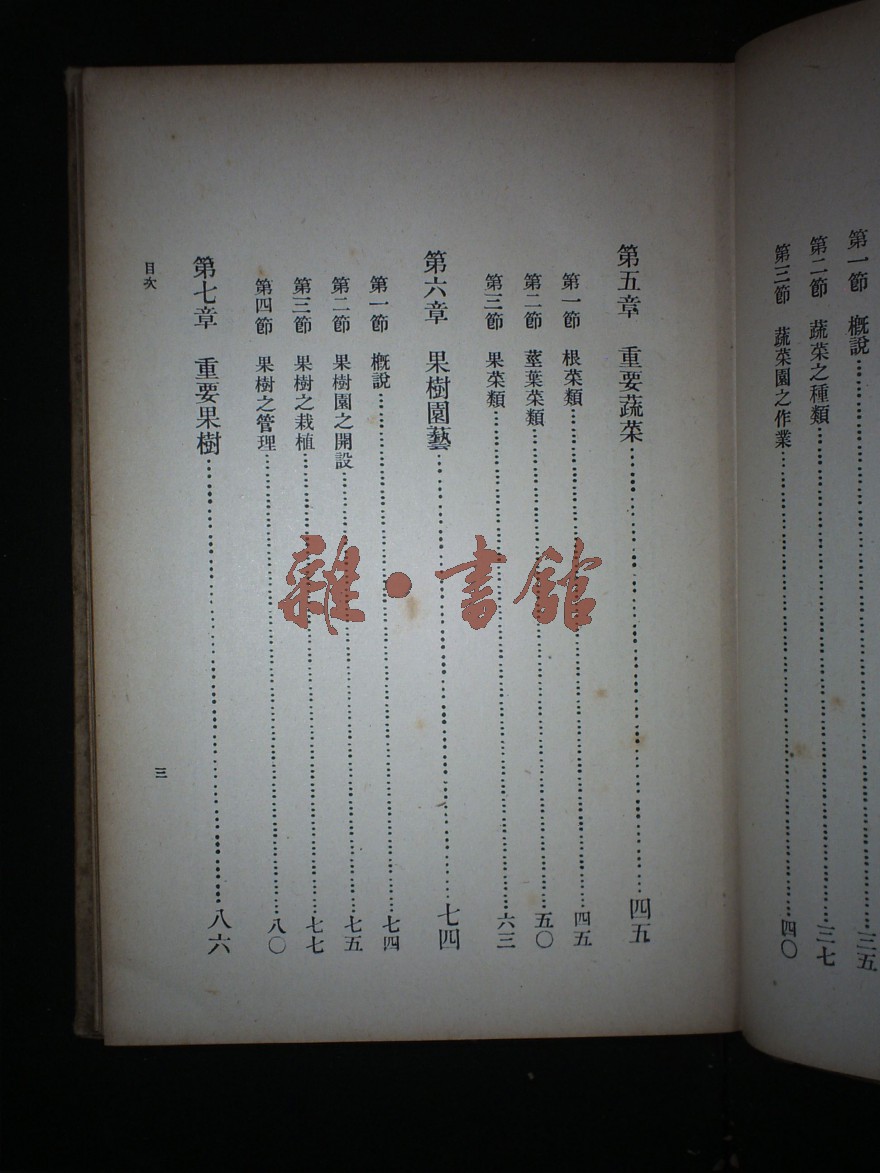 第一節　概說……三五
第二節　蔬菜之種類……三七
第三節　蔬菜園之作業……四〇
第五章　重要蔬菜……四五
第一節　根菜類……四五
第二節　莖葉菜類……五〇
第三節　果菜類……六三
第六章　果樹園藝……七四
第一節　概說……七四
第二節　果樹園之開設……七五
第三節　果樹之栽植……七七
第四節　果樹之管理……八〇
第七章　重要果樹……八六
目次
三
雜·書館